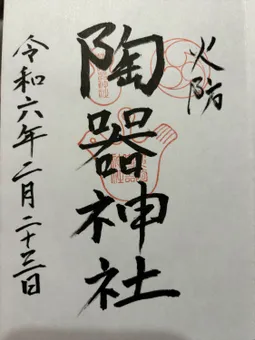 火防
陶器神社
令和六年二月二十三日